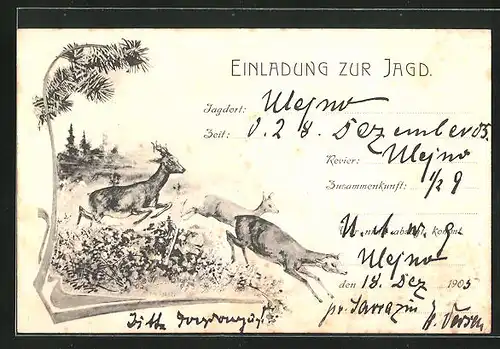 EINLADUNG ZUR JAGD.
Jagdort: Ulejno
Zeit: d. 28. Dezember 05.
Revier: Ulejno
Zusammenkunft: 1/2 9
U. A. w. g.
Ulejno
den 18. Dez 1905
pr. Sarrazin
Bitte